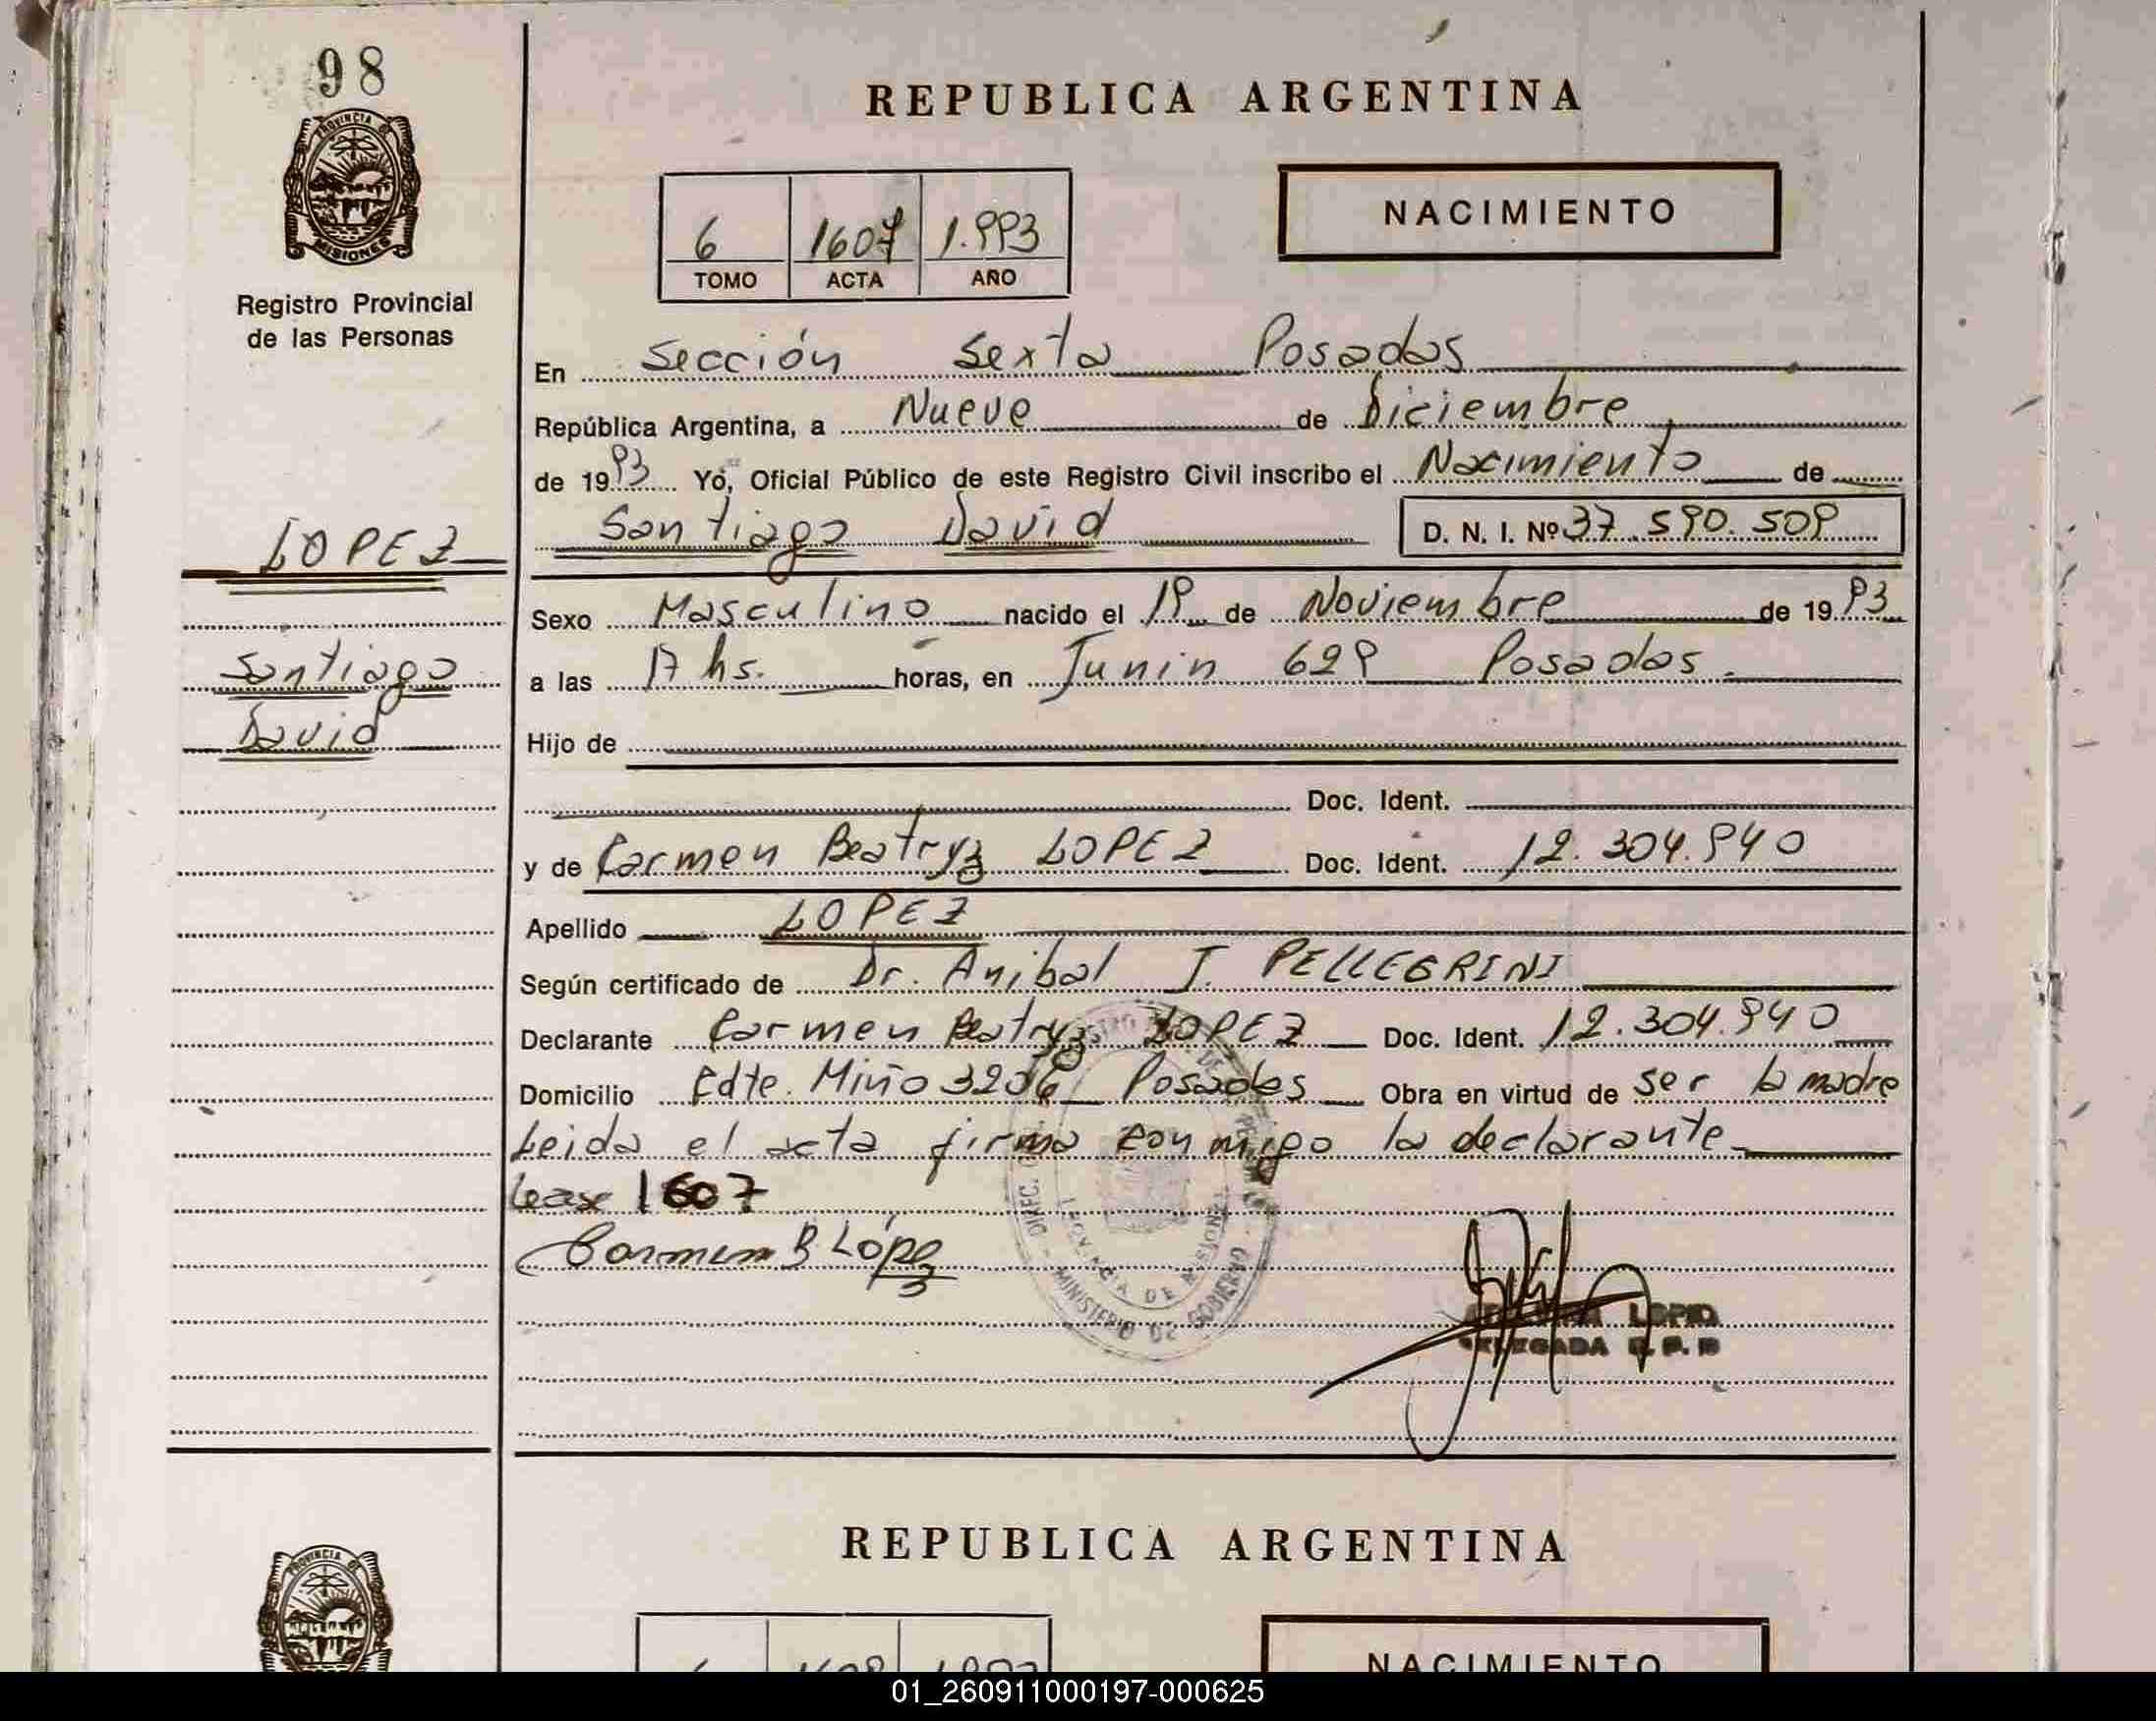 98
PROVINCIA DE
MISIONES
Registro Provincial
de las Personas
LOPEZ
Santiago
David
REPUBLICA ARGENTINA
6 1607 1.993
TOMO ACTA AÑO
NACIMIENTO
En Sección Sexta Posadas
República Argentina, a Nueve de Diciembre
de 1993 Yo, Oficial Público de este Registro Civil inscribo el Nacimiento de
Santiago David D. N. I. Nº 37.590.509
Sexo Masculino nacido el 19 de Noviembre de 1993
a las 17 hs. horas, en Junin 629 Posadas.
Hijo de
Doc. Ident.
y de Carmen Beatryz LOPEZ Doc. Ident. 12.304.940
Apellido LOPEZ
Según certificado de Dr. Anibal J. PELLEGRINI
Declarante Carmen Beatryz LOPEZ Doc. Ident. 12.304.940
Domicilio Cdte. Miño 3206 Posadas Obra en virtud de ser la madre
Leida el acta firma conmigo la declarante
Lease 1607
Carmen B López
PROVINCIA DE MISIONES
MINISTERIO DE GOBIERNO
DELEGADA R. P. P
REPUBLICA ARGENTINA
PROVINCIA DE
NACIMIENTO
01_260911000197-000625